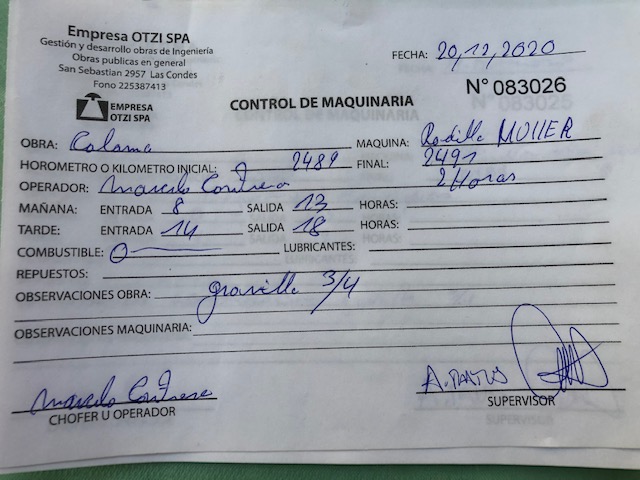 Empresa OTZI SPA
Gestión y desarrollo obras de Ingeniería
Obras publicas en general
San Sebastian 2957 Las Condes
Fono 225387413
EMPRESA
OTZI SPA
FECHA: 20,12,2020
CONTROL DE MAQUINARIA
N° 083026
OBRA: MAQUINA: Rodillo
HOROMETRO O KILOMETRO INICIAL: 2489 FINAL: 2491
OPERADOR: 2 Horas
MAÑANA: ENTRADA 8 SALIDA 13 HORAS:
TARDE: ENTRADA 14 SALIDA 18 HORAS:
COMBUSTIBLE: LUBRICANTES:
REPUESTOS:
OBSERVACIONES OBRA: 3/4
OBSERVACIONES MAQUINARIA:
CHOFER U OPERADOR
SUPERVISOR